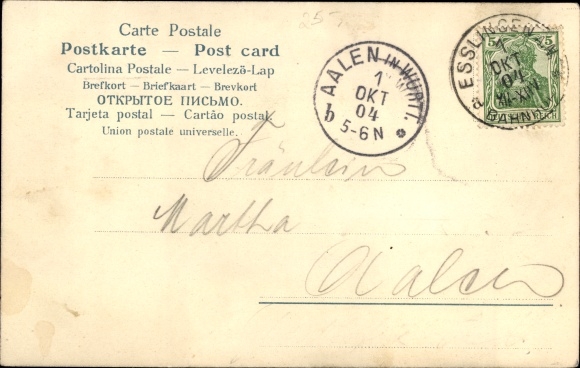 Carte Postale
Postkarte — Post card
Cartolina Postale — Levelező-Lap
Brefkort — Briefkaart — Brevkort
ОТКРЫТОЕ ПИСЬМО.
Tarjeta postal — Cartão postal
Union postale universelle.
25
AALEN IN WÜRTT.
1
OKT
04
b 5-6 N
ESSLINGEN
1
OKT
04
a XI-XII V
BAHNHOF
5
REICH
Fräulein
Martha
Aalen